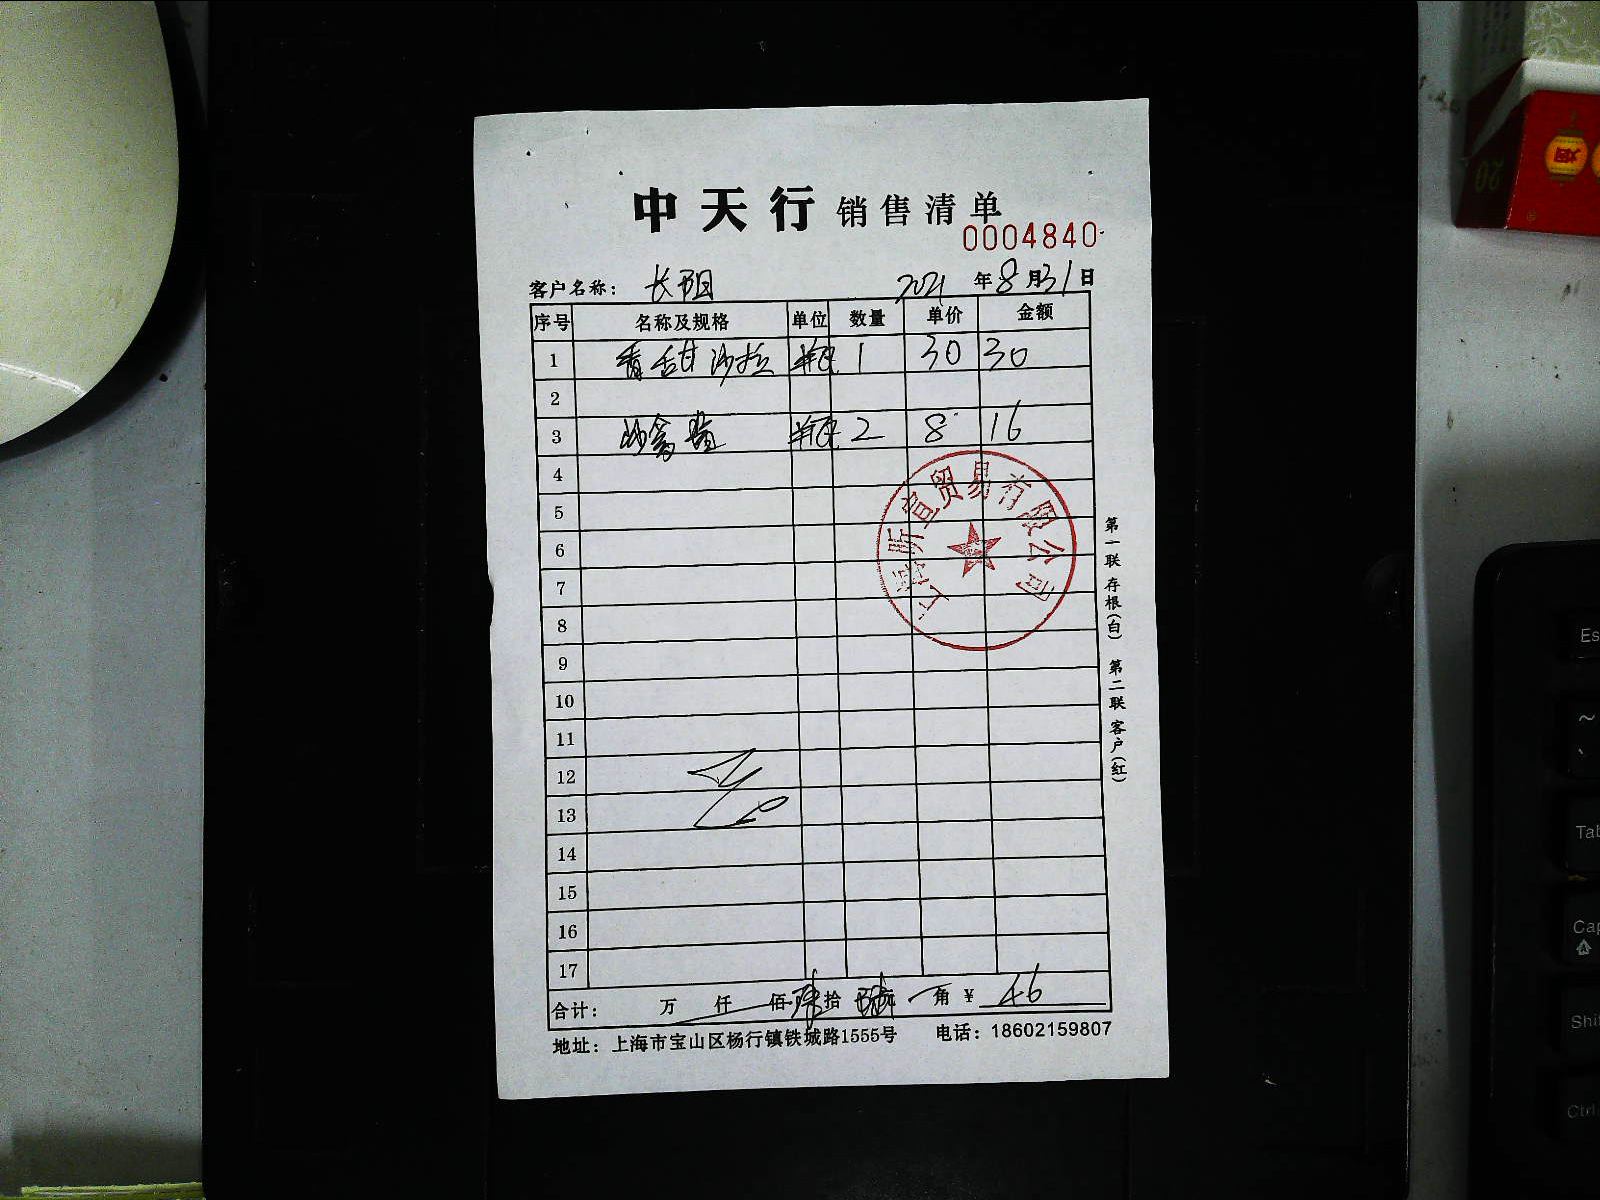 中天行 销售清单
0004840
客户名称： 长阳 2021 年 8 月 31 日
序号 名称及规格 单位 数量 单价 金额
1 香甜沙拉 瓶 1 30 30
2
3 瓶 2 8 16
4
5
6
7
8
9
10
11
12
13
14
15
16
17
合计： 万 仟 佰 肆 拾 陆 元 角 ¥ 46
地址：上海市宝山区杨行镇铁城路1555号 电话：18602159807
第一联 存根（白） 第二联 客户（红）
上海昕宣贸易有限公司
烟
20
Es
~
Tab
Cap
Shi
Ctrl